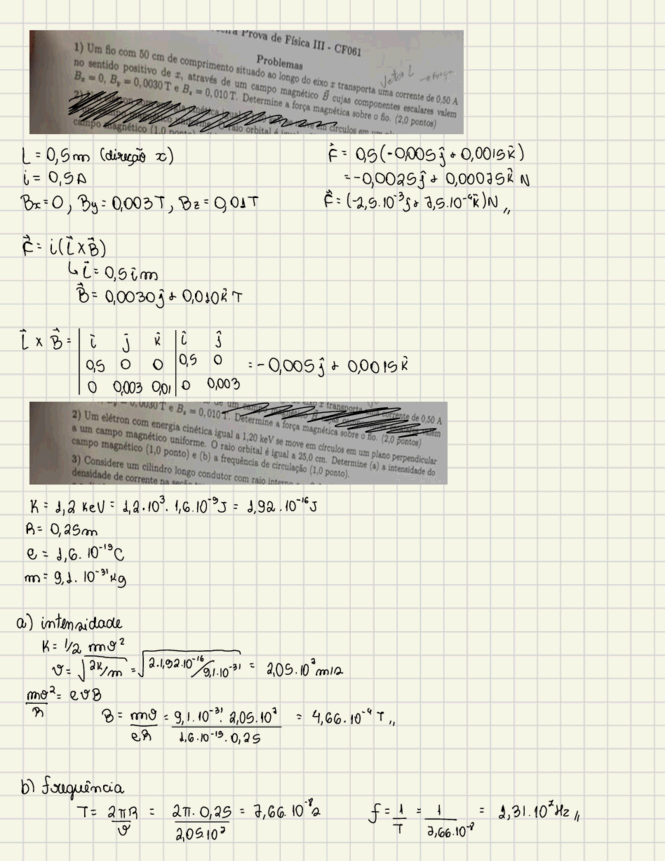 Prova de Física III - CF061
Problemas
1) Um fio com 50 cm de comprimento situado ao longo do eixo x transporta uma corrente de 0,50 A
no sentido positivo de x, através de um campo magnético B⃗ cujas componentes escalares valem
Bₓ = 0, Bᵧ = 0,0030 T e B_z = 0,010 T. Determine a força magnética sobre o fio. (2,0 pontos)
campo magnético (1,0 ponto)
L = 0,5 m (direção x)
i = 0,5 A
Bx = 0, By = 0,003 T, Bz = 0,01 T
F⃗ = 0,5(-0,005 ĵ + 0,0015 k̂)
= -0,0025 ĵ + 0,00075 k̂ N
F⃗ = (-2,5.10⁻³ ĵ + 7,5.10⁻⁴ k̂) N
F⃗ = i(L⃗ x B⃗)
↳ L⃗ = 0,5 î m
B⃗ = 0,0030 ĵ + 0,010 k̂ T
L⃗ x B⃗ = | î ĵ k̂ | î ĵ
0,5 0 0 | 0,5 0 = -0,005 ĵ + 0,0015 k̂
0 0,003 0,01 | 0 0,003
0,0030 T e B_z = 0,010 T. Determine a força magnética sobre o fio. (2,0 pontos)
2) Um elétron com energia cinética igual a 1,20 keV se move em círculos em um plano perpendicular
a um campo magnético uniforme. O raio orbital é igual a 25,0 cm. Determine (a) a intensidade do
campo magnético (1,0 ponto) e (b) a frequência de circulação (1,0 ponto).
3) Considere um cilindro longo condutor com raio interno
densidade de corrente na seção
K = 1,2 keV = 1,2.10³ . 1,6.10⁻¹⁹ J = 1,92.10⁻¹⁶ J
R = 0,25 m
e = 1,6.10⁻¹⁹ C
m = 9,1.10⁻³¹ kg
a) intensidade
K = 1/2 mv²
v = √2K/m = √2.1,92.10⁻¹⁶/9,1.10⁻³¹ = 2,05.10⁷ m/s
mv²/R = evB
B = mv/eR = 9,1.10⁻³¹ . 2,05.10⁷/1,6.10⁻¹⁹ . 0,25 = 4,66.10⁻⁴ T
b) frequência
T = 2πR/v = 2π.0,25/2,05.10⁷ = 7,66.10⁻⁸ s f = 1/T = 1/7,66.10⁻⁸ = 1,31.10⁷ Hz